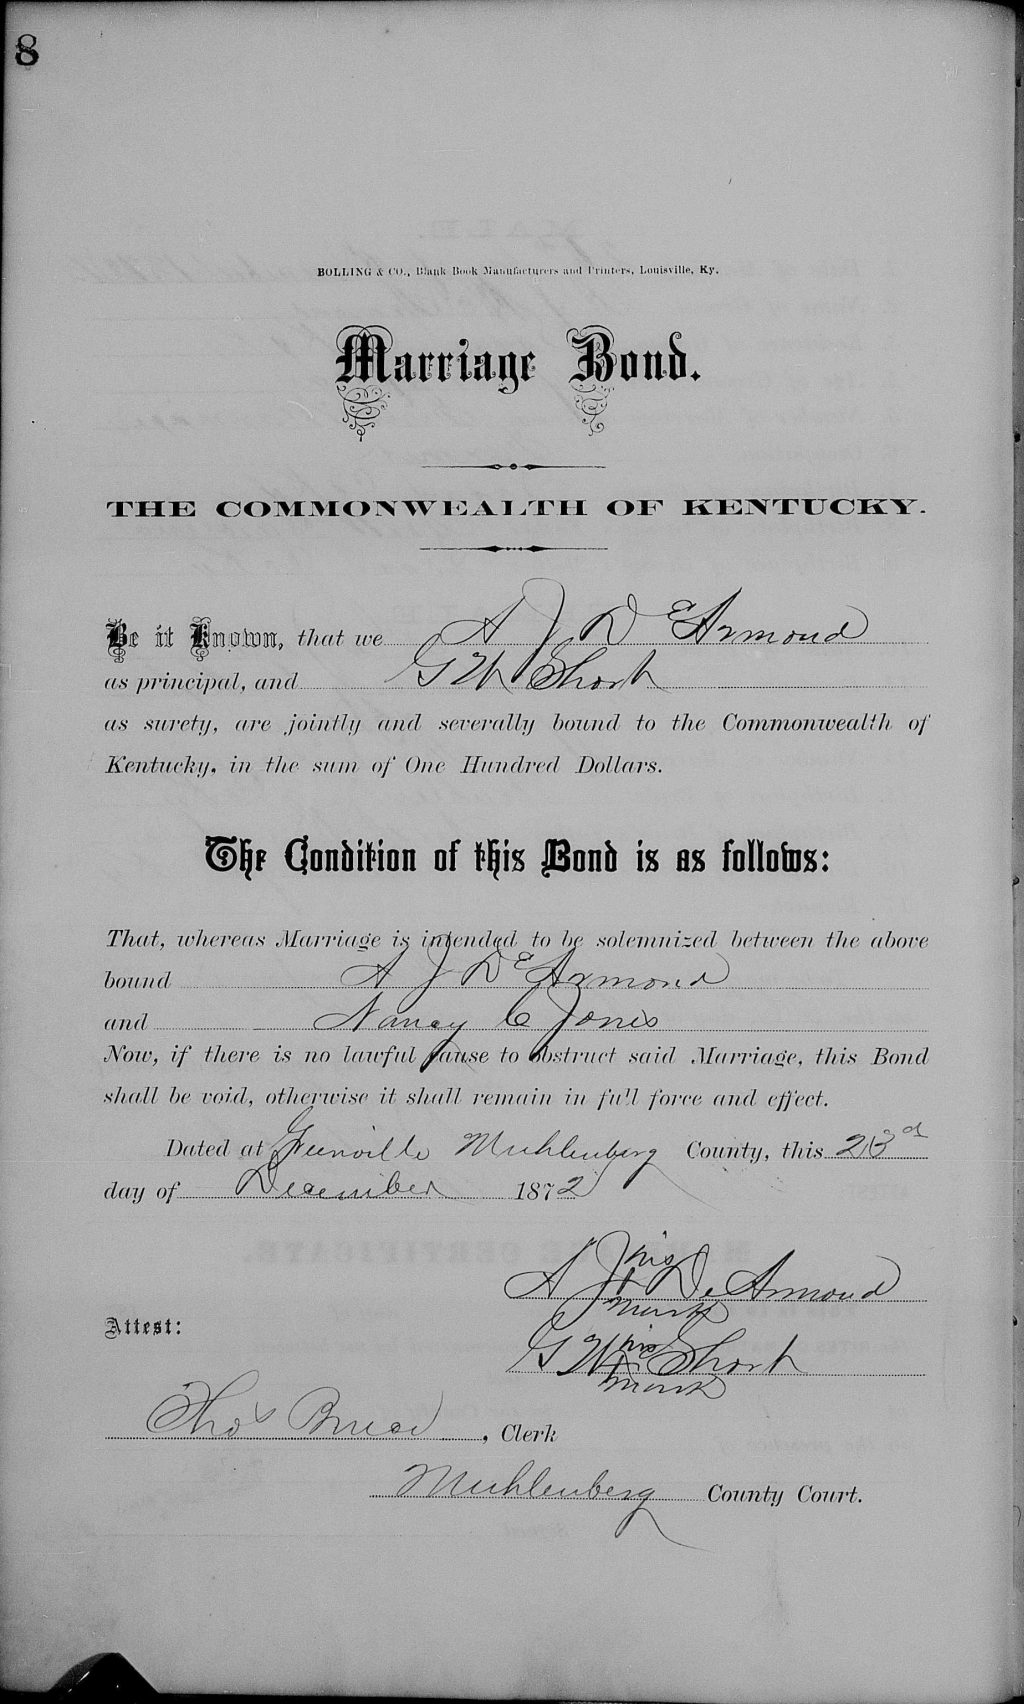 8
BOLLING & CO., Blank Book Manufacturers and Printers, Louisville, Ky.
Marriage Bond.
THE COMMONWEALTH OF KENTUCKY.
Be it Known, that we A J DeArmond
as principal, and G W Short
as surety, are jointly and severally bound to the Commonwealth of
Kentucky, in the sum of One Hundred Dollars.
The Condition of this Bond is as follows:
That, whereas Marriage is intended to be solemnized between the above
bound A J DeArmond
and Nancy C Jones
Now, if there is no lawful cause to obstruct said Marriage, this Bond
shall be void, otherwise it shall remain in full force and effect.
Dated at Greenville Muhlenberg County, this 23rd
day of December 1872
A J his DeArmond
mark
Attest:
G W his Short
mark
Thos Bruce, Clerk
Muhlenberg County Court.